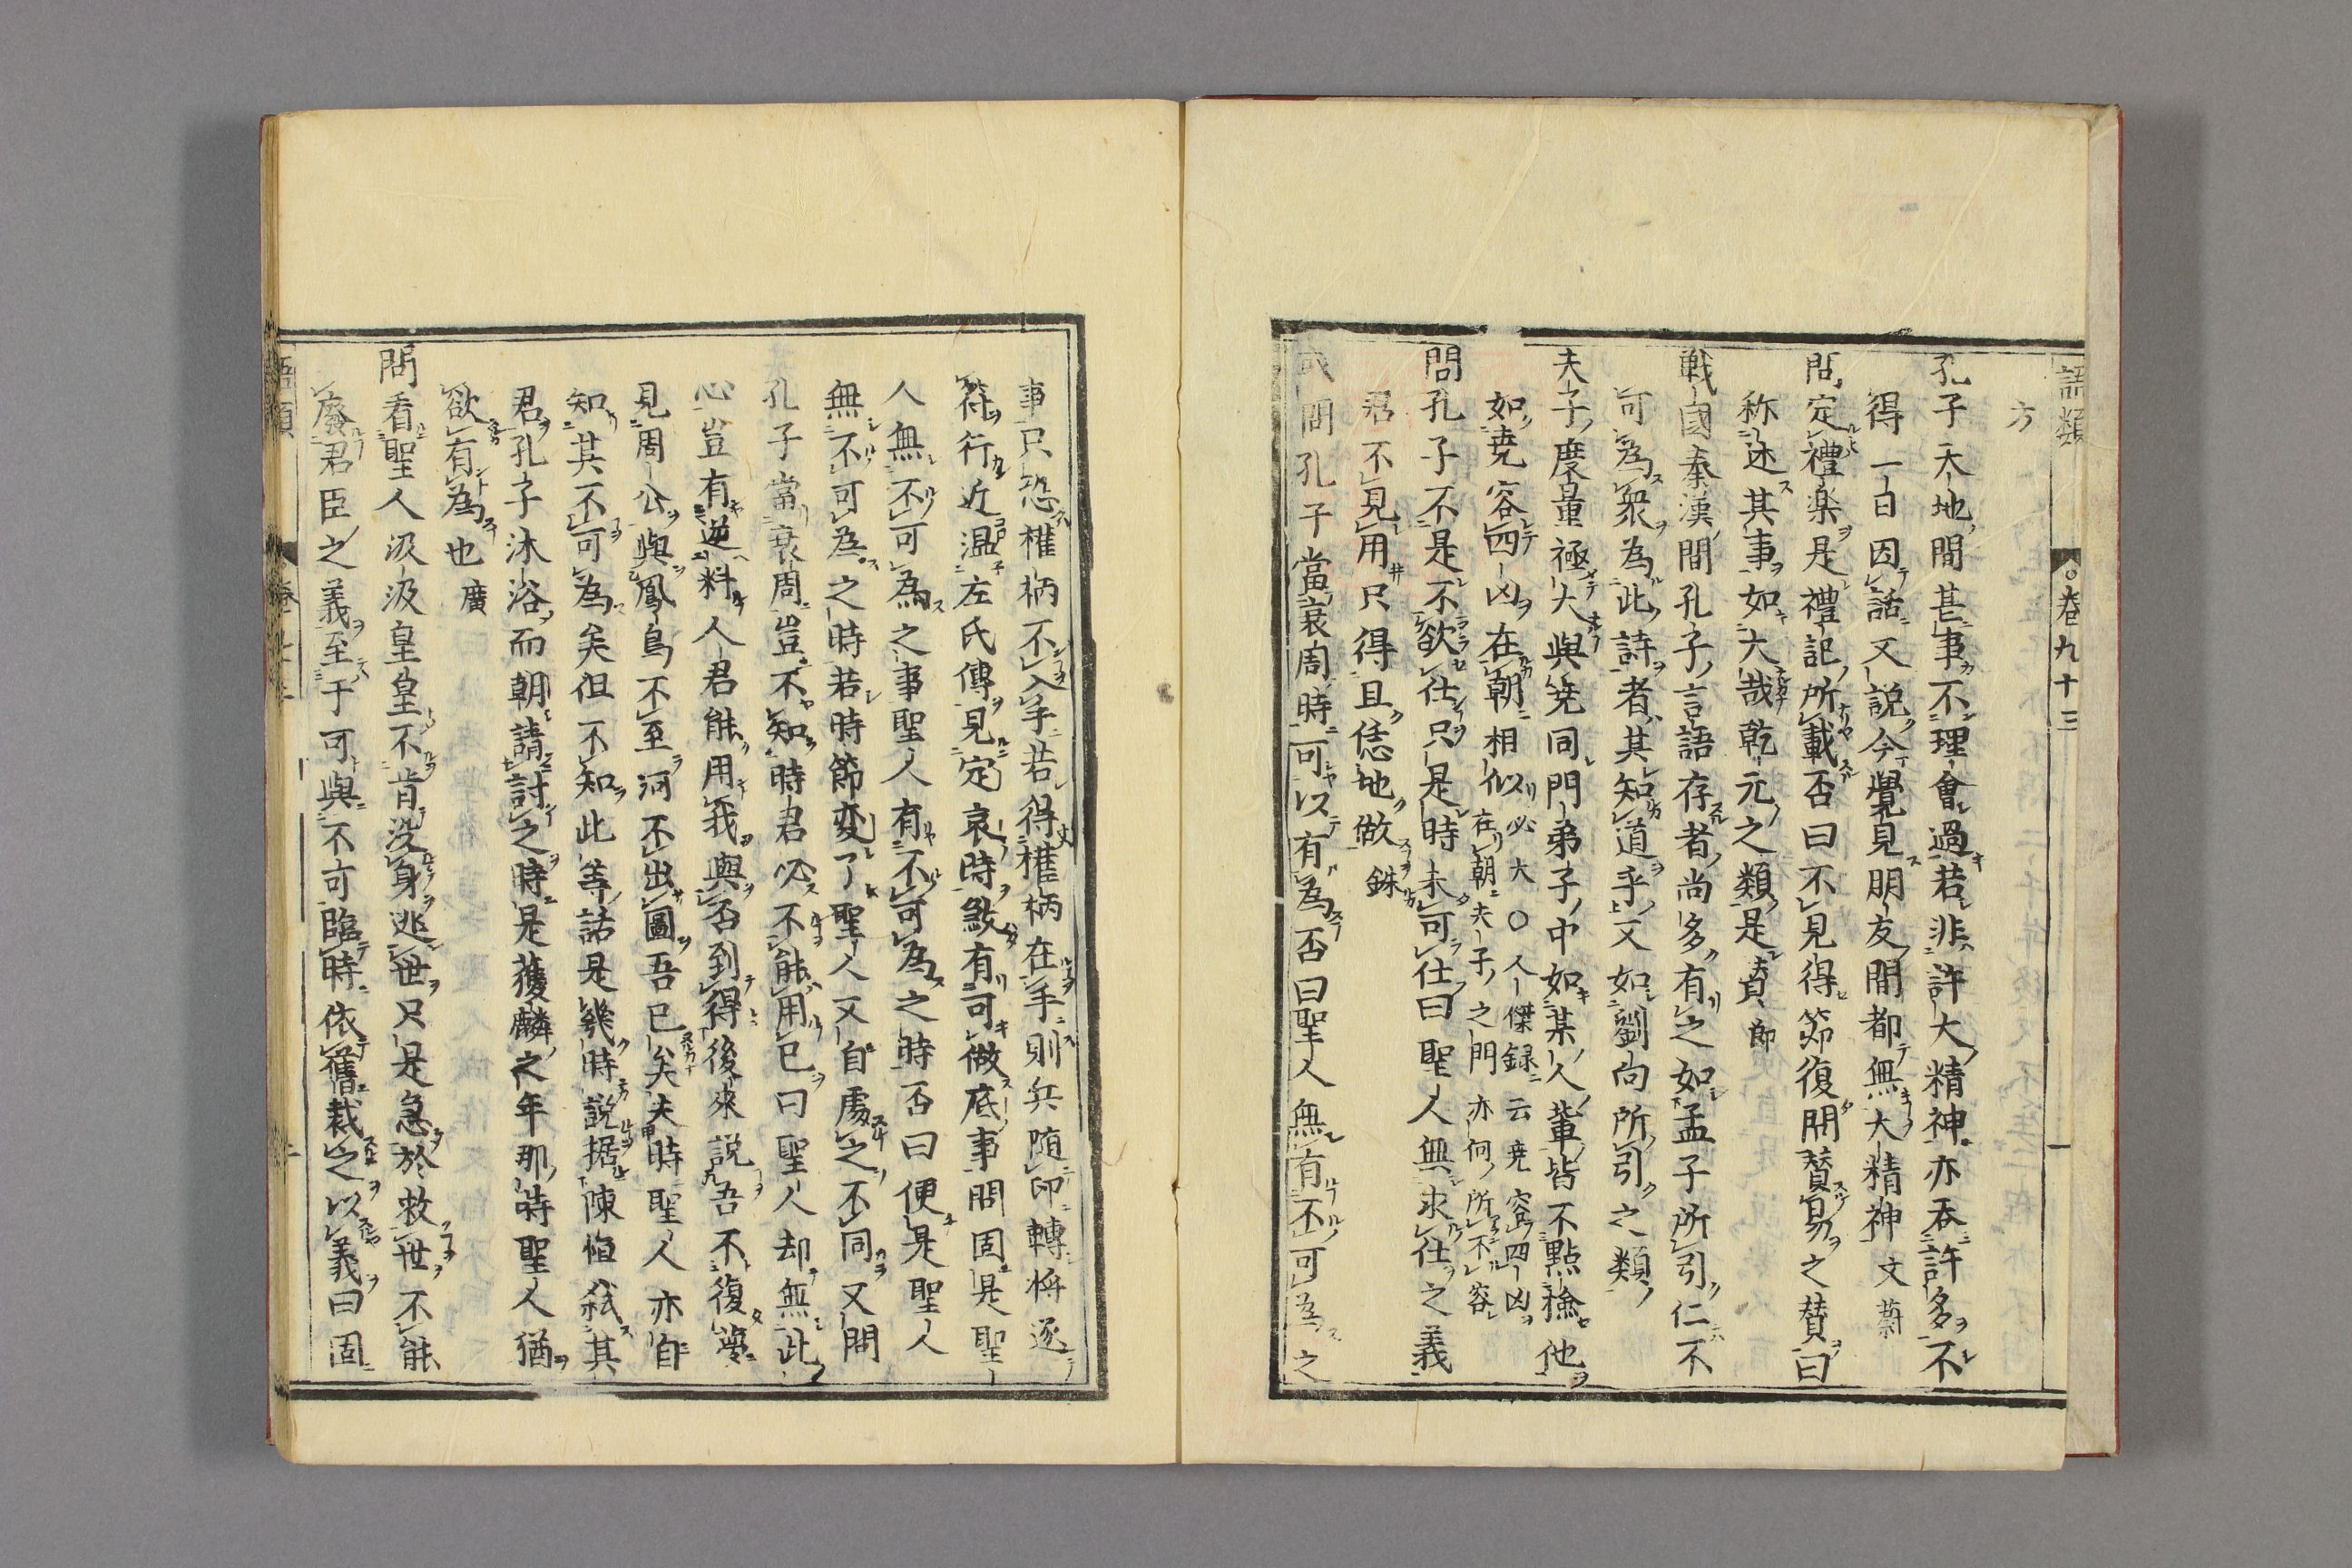 語類
○卷九十三
一
方
孔子天地間甚事不理會過若非許大精神亦吞許多不
得一日因話又説今覺見朋友間都無大精神 文蔚
問定禮樂是禮記所載否曰不見得節復問賛易之賛曰
称述其事如大哉乾元之類是賛 節
戦國秦漢間孔子言語存者尚多有之如孟子所引仁不
可為衆為此詩者其知道乎又如劉向所引之類
夫子度量極大與堯同門弟子中如某人輩皆不點檢他
如堯容四凶在朝相似 必大○人傑録云堯容四凶
在朝夫子之門亦何所不容
問孔子不是不欲仕只是時未可仕曰聖人無求仕之義
君不見用只得且恁地做 銖
或問孔子當衰周時可以有為否曰聖人無有不可為之
事只恐權柄不入手若得權柄在手則兵随印轉將逐
符行近温左氏傳見定哀時煞有可做底事問固是聖
人無不可為之事聖人有不可為之時否曰便是聖人
無不可為之時若時節変了聖人又自處之不同又問
孔子當衰周豈不知時君必不能用已曰聖人却無此
心豈有逆料人君能用我與否到得後來説吾不復夢
見周公與鳳鳥不至河不出圖吾已矣夫時聖人亦自
知其不可為矣但不知此等話是幾時説据陳恒弑其
君孔子沐浴而朝請討之時是獲麟之年那時聖人猶
欲有為也 廣
問看聖人汲汲皇皇不肯没身逃世只是急於救世不能
廢君臣之義至于可與不可臨時依舊裁之以義曰固